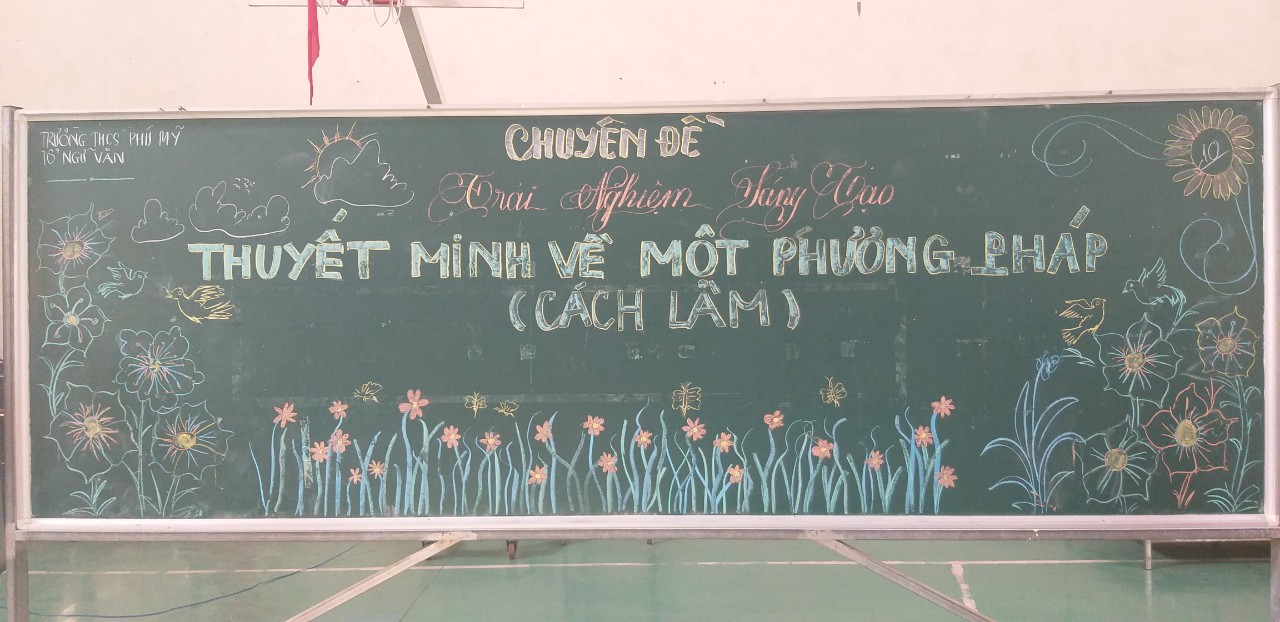 TRƯỜNG THCS PHÚ MỸ
TỔ NGỮ VĂN
CHUYÊN ĐỀ
Trải Nghiệm Sáng Tạo
THUYẾT MINH VỀ MỘT PHƯƠNG PHÁP
(CÁCH LÀM)
10